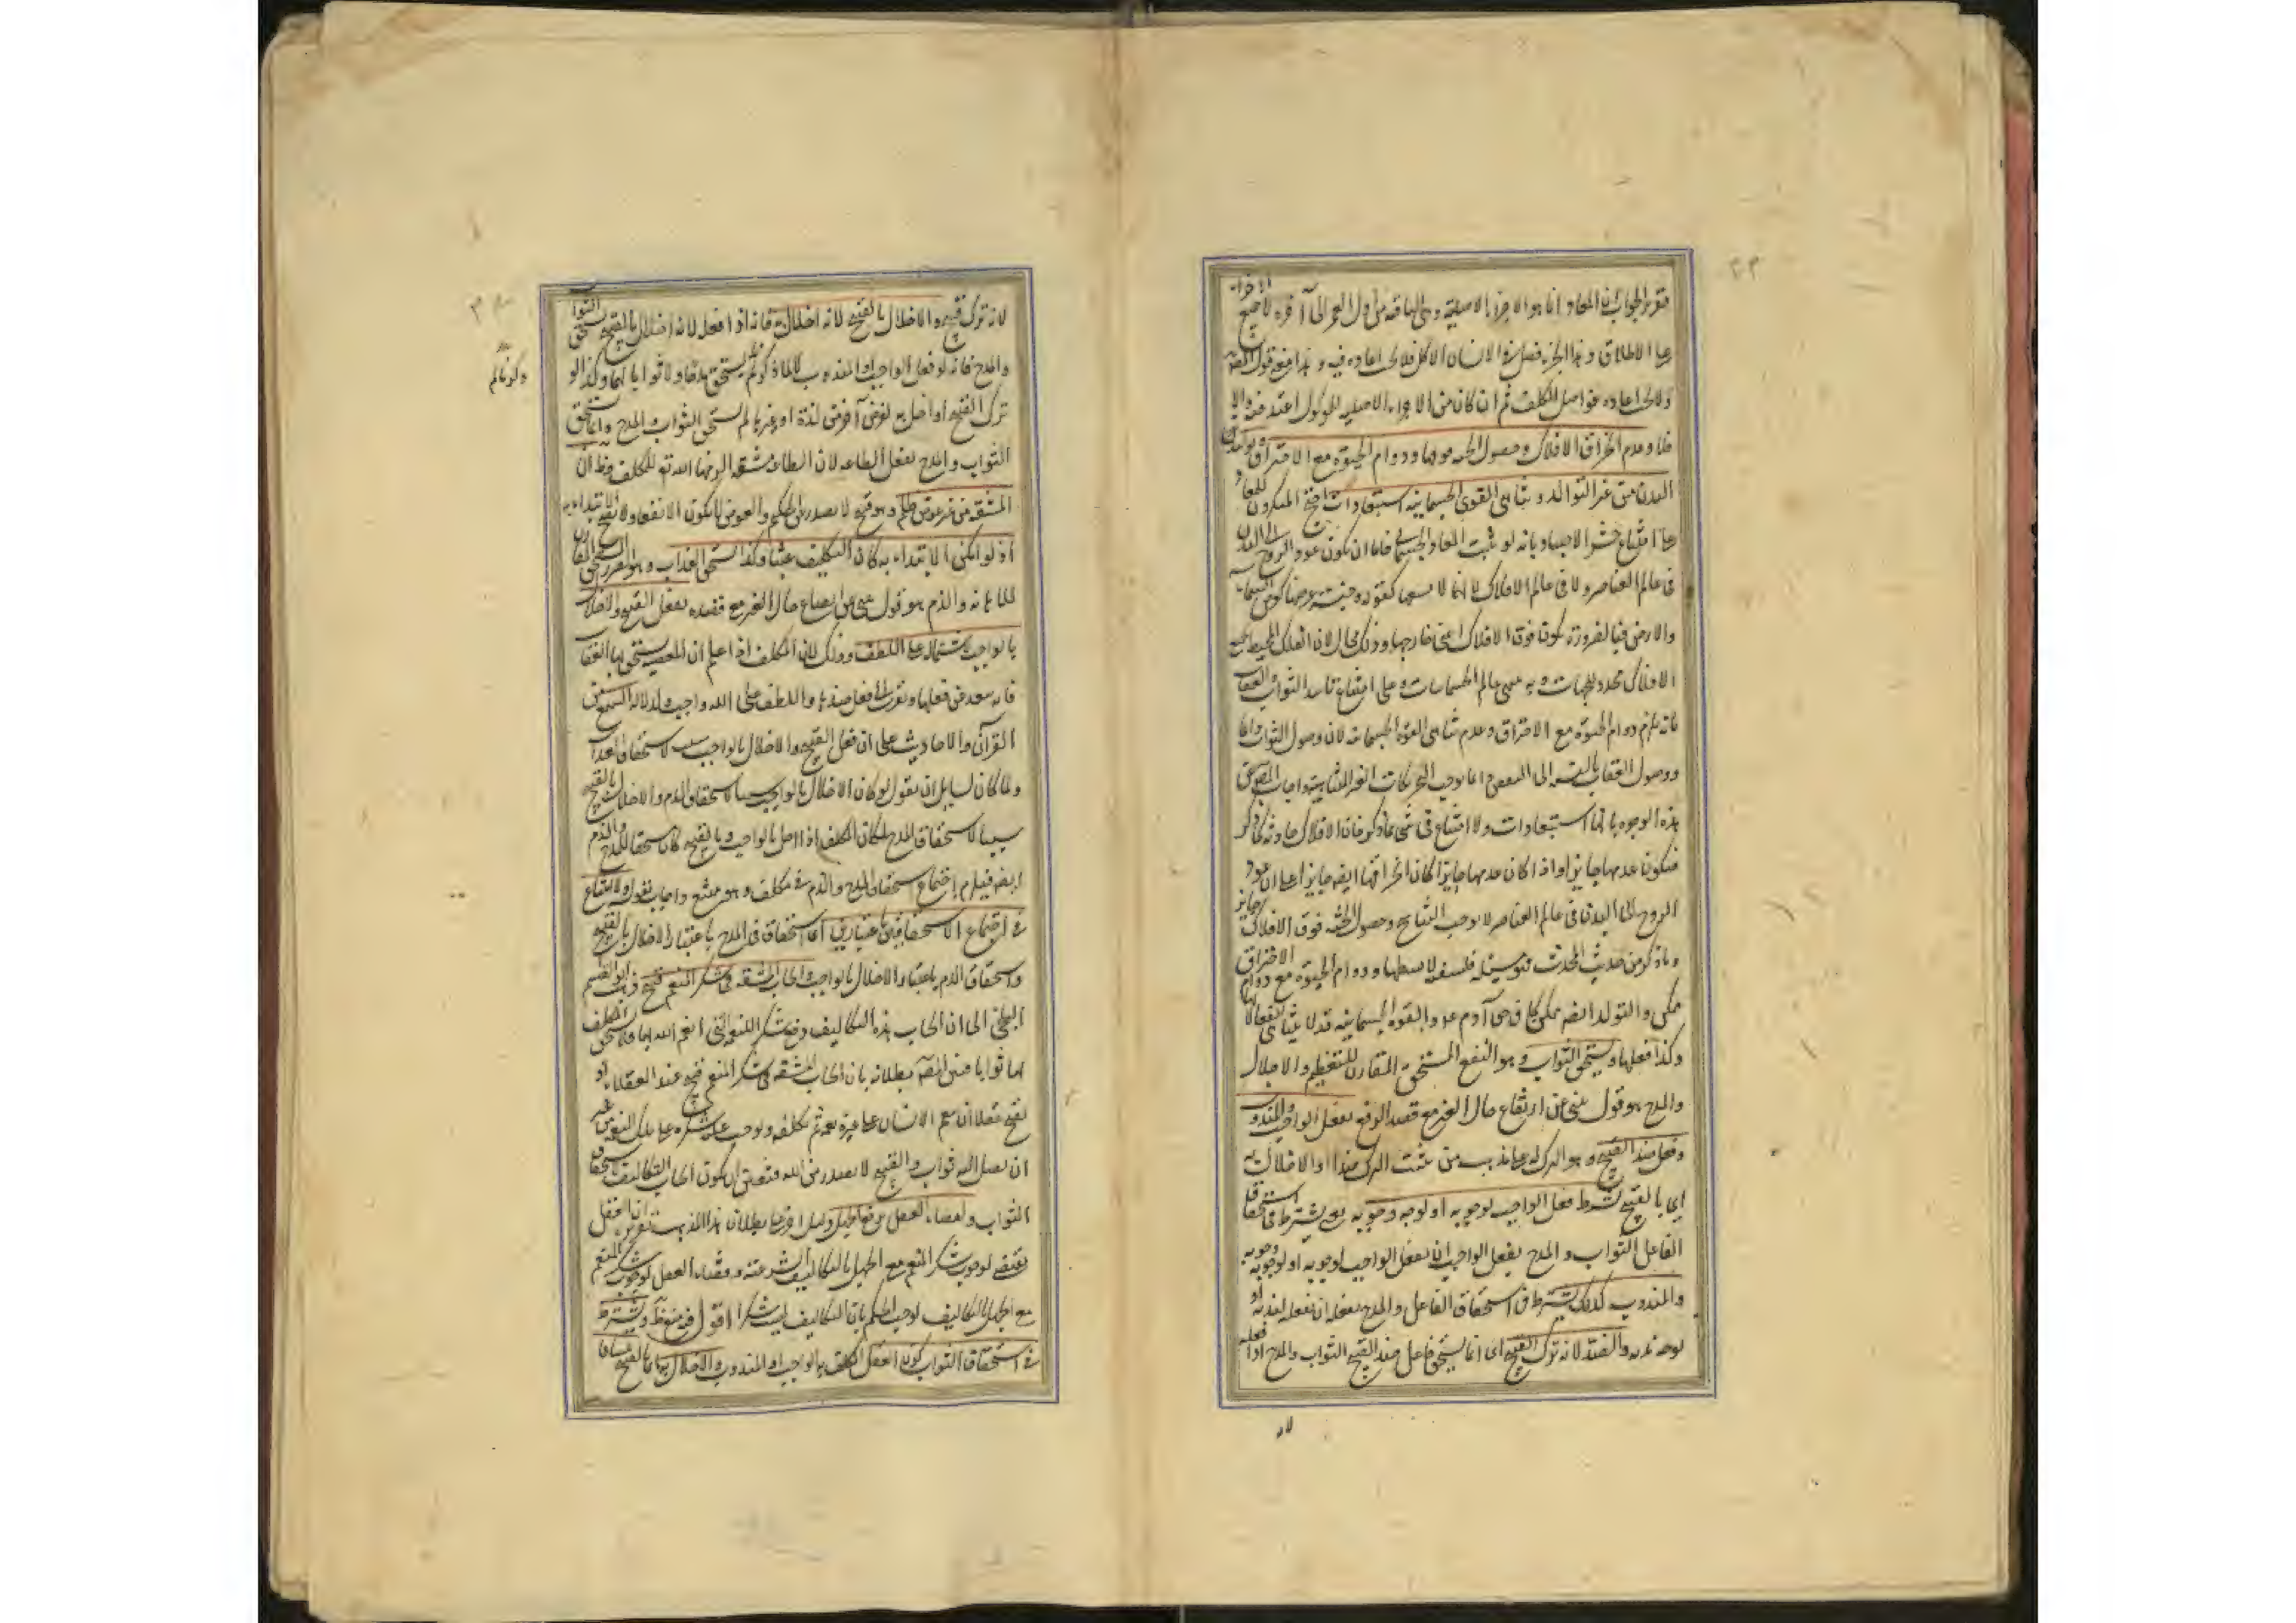 فتقرير الجواب ان المعاد انما هو الاجزاء الاصلية وهى الباقية من اول العمر الى آخره لا جميع الاجزاء
على الاطلاق وهذا الجزء فضل فى الانسان الآكل فلا يجب اعادته فيه وهذا معنى قول المصنف
ولا يجب اعادة فواضل المكلف ثم ان كان من الاجزاء الاصلية للمأكول اعيد فيه والا
فلا وعدم انخراق الافلاك وحصول الجنة فوقها ودوام الحيوة مع الاحتراق وتولد
البدن من غير التوالد وتناهى القوى الجسمانية استبعادات احتج المنكرون للمعاد
على امتناع حشر الاجساد بانه لو ثبت المعاد الجسمانى فاما ان يكون عود الروح الى البدن
فى عالم العناصر ولا فى عالم الافلاك لانها لا تسعها كقوله وجنة عرضها كعرض السموات
والارض فبالضرورة يكون فوق الافلاك اعنى خارجها وذلك محال لان الفلك المحيط بجميع
الافلاك محدد الجهات وبه ينتهى عالم الجسمانيات وعلى امتناع تأبيد الثواب والعقاب
بانه يلزم دوام الحيوة مع الاحتراق وعدم تناهى القوة الجسمانية لان وصول الثواب دائما
ووصول العقاب بالنسبة الى البعض دائما يوجب التحريكات الغير المتناهية واجاب المصنف عن
هذه الوجوه بانها استبعادات ولا امتناع فى شئ مما ذكر فان الافلاك حادثة كما ذكر
فيكون عدمها جايزا واذا كان عدمها جايزا كان انخراقها ايضا جايزا على ان عود
الروح الى البدن فى عالم العناصر لا يوجب التناسخ وحصول الجنة فوق الافلاك جايز
وما ذكر من حديث المحدد فهو مسئلة فلسفية لا نسلمها ودوام الحيوة مع دوام الاحتراق
ممكن والتولد ايضا ممكن كما فى حق آدم والقوة الجسمانية قد لا يتناهى انفعالاتها
وكذا فعلها ويستحق الثواب وهو النفع المستحق المقارن للتعظيم والاجلال
والمدح هو قول ينبئ عن ارتفاع حال الغير مع قصد الرفع بفعل الواجب والمندوب
وفعل ضد القبيح وهو الترك له على مذهب من يثبت الترك ضدا او الاخلال به
اى بالقبيح بشرط فعل الواجب لوجوبه او لوجه وجوبه يعنى يشترط فى استحقاق
الفاعل الثواب والمدح بفعل الواجب ان يفعل الواجب لوجوبه او لوجه وجوبه
والمندوب كذلك يشترط فى استحقاق الفاعل والمدح بفعله ان يفعله لندبه او
لوجه ندبه والضد لانه ترك القبيح اى انما يستحق فاعل ضد القبيح الثواب والمدح اذا فعله
لانه
لانه ترك قبيح والاخلال بالقبيح لانه اخلال به فانه اذا فعله لانه اخلال بالقبيح يستحق الثواب
والمدح فانه لو فعل الواجب او المندوب لا لما ذكرنا لم يستحق مدحا ولا ثوابا بهما وكذا لو
ترك القبيح او اخل به لغرض آخر من لذة او غيرها لم يستحق الثواب والمدح وانما يستحق
الثواب والمدح بفعل الطاعة لان الطاعة مشقة الزمها الله تع للمكلف فظ ان
المشقة من غير عوض ظلم وهو قبيح لا يصدر عن الحكيم والعوض لا يكون الا نفعا ولا يصح الابتداء به
اذ لو امكن الابتداء به كان التكليف عبثا وكذا يستحق العذاب وهو الضرر المستحق المقارن
للاهانة والذم هو قول ينبئ عن اتضاع حال الغير مع قصده بفعل القبيح والاخلال
بالواجب لاشتماله على اللطف وذلك لان المكلف اذا علم ان المعصية يستحق بها العقاب
فانه يبعد عن فعلها ويقرب الى فعل ضدها واللطف على الله واجب ولدلالة السمع من
القرآن والاحاديث على ان فعل القبيح والاخلال بالواجب سبب لاستحقاق العذاب
ولما كان لسايل ان يقول لو كان الاخلال بالواجب سببا لاستحقاق الذم والاخلال بالقبيح
سببا لاستحقاق المدح لكان المكلف اذا اخل بالواجب وبالقبيح كان مستحقا للمدح والذم
ايضا فيلزم اجتماع استحقاق المدح والذم فى مكلف وهو ممتنع واجاب بقوله ولا امتناع
فى اجتماع الاستحقاقين باعتبارين اى استحقاق المدح باعتبار الاخلال بالقبيح
واستحقاق الذم باعتبار الاخلال بالواجب وايجاب المشقة فى شكر المنعم قبيح ذهب ابو القسم
البلخى الى ان ايجاب هذه التكاليف وقع شكرا للنعم التى انعم الله بها فلا يستحق المكلف
بها ثوابا فبين المصنف بطلانه بان ايجاب المشقة فى شكر المنعم قبيح عند العقلاء اذ
يقبح عقلا ان ينعم الانسان على غيره نعمة ثم يكلفه ويوجب عليه شكره على تلك النعم من غير
ان يصل اليه ثواب والقبيح لا يصدر من الله فتعين ان يكون ايجاب التكاليف لاستحقاق
الثواب ولقضاء العقل به مع الجهل دليل آخر على بطلان هذا المذهب تقريره ان العقل
يقتضى لوجوب شكر المنعم مع الجهل بالتكاليف الشرعية وقضاء العقل لوجوب شكر المنعم
مع الجهل بالتكاليف يوجب الحكم بان التكاليف ليست شكرا اقول فيه نظر ويشترط
فى استحقاق الثواب كون الفعل المكلف به الواجب او المندوب والاخلال بالقبيح شاقا
وكونه لم